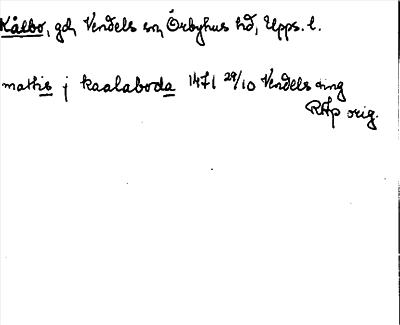 Kålbo, gd, Vendels sn, Örbyhus hd, Upps. l.
mathis j kaalaboda 1471 29/10 Vendels ting
RAp orig.